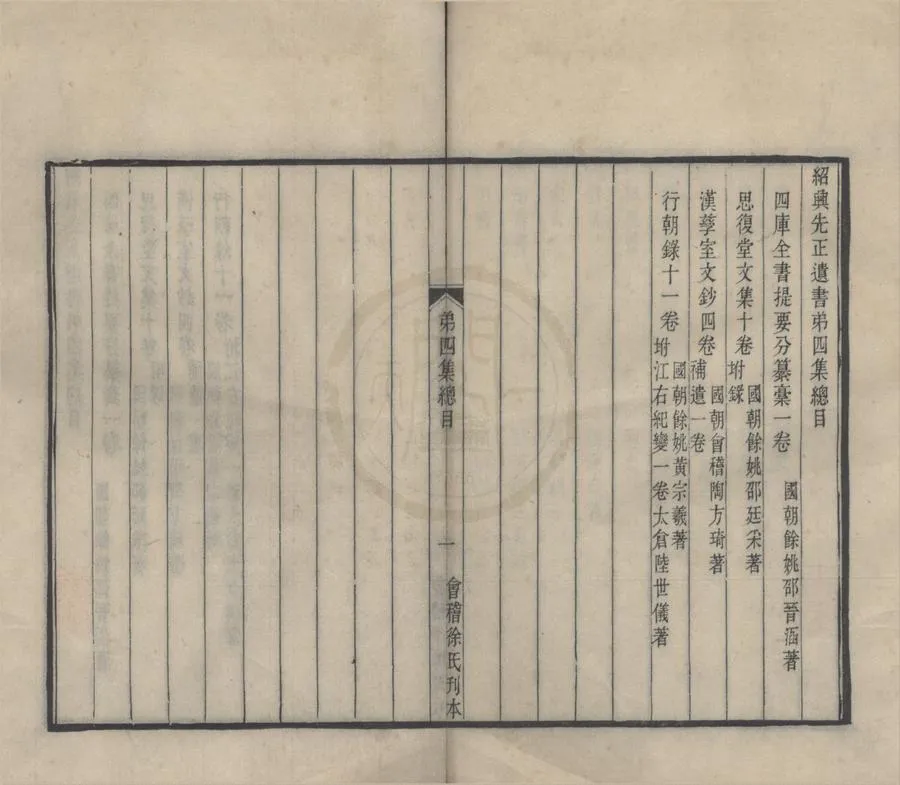 紹興先正遺書弟四集總目
四庫全書提要分纂稾一卷 國朝餘姚邵晉涵著
思復堂文集十卷附錄 國朝餘姚邵廷采著
漢孳室文鈔四卷補遺一卷 國朝會稽陶方琦著
行朝錄十一卷 國朝餘姚黃宗羲著
坿江右紀變一卷太倉陸世儀著
弟四集總目
一
會稽徐氏刊本